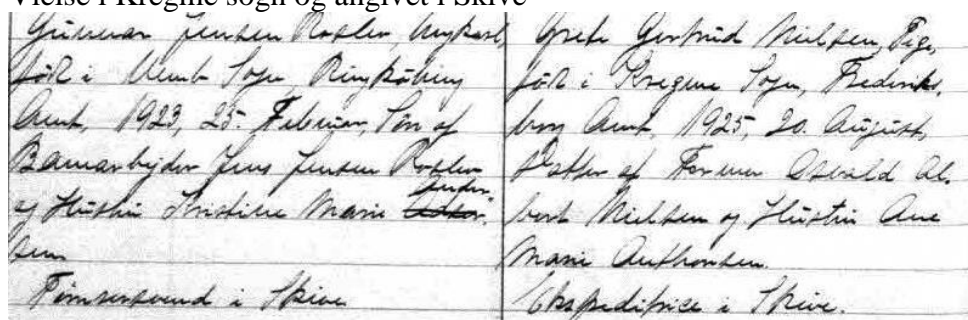 Vielse i Kregme sogn og angivet i Skive
Gunnar Jensen Roslev, Ungkarl,
født i Nemb Sogn, Ringkøbing
Amt, 1923, 25. Februar, Søn af
Banearbejder Jens Jensen Roslev
og Hustru Kristine Marie Ander-
sen
i Skive
Grete Gertrud Nielsen, Pige,
født i Kregme Sogn, Frederiks-
borg Amt, 1925, 20. August,
Datter af Former Osvald Al-
bert Nielsen og Hustru Ane
Marie Anthonsen.
Ekspeditrice i Skive.